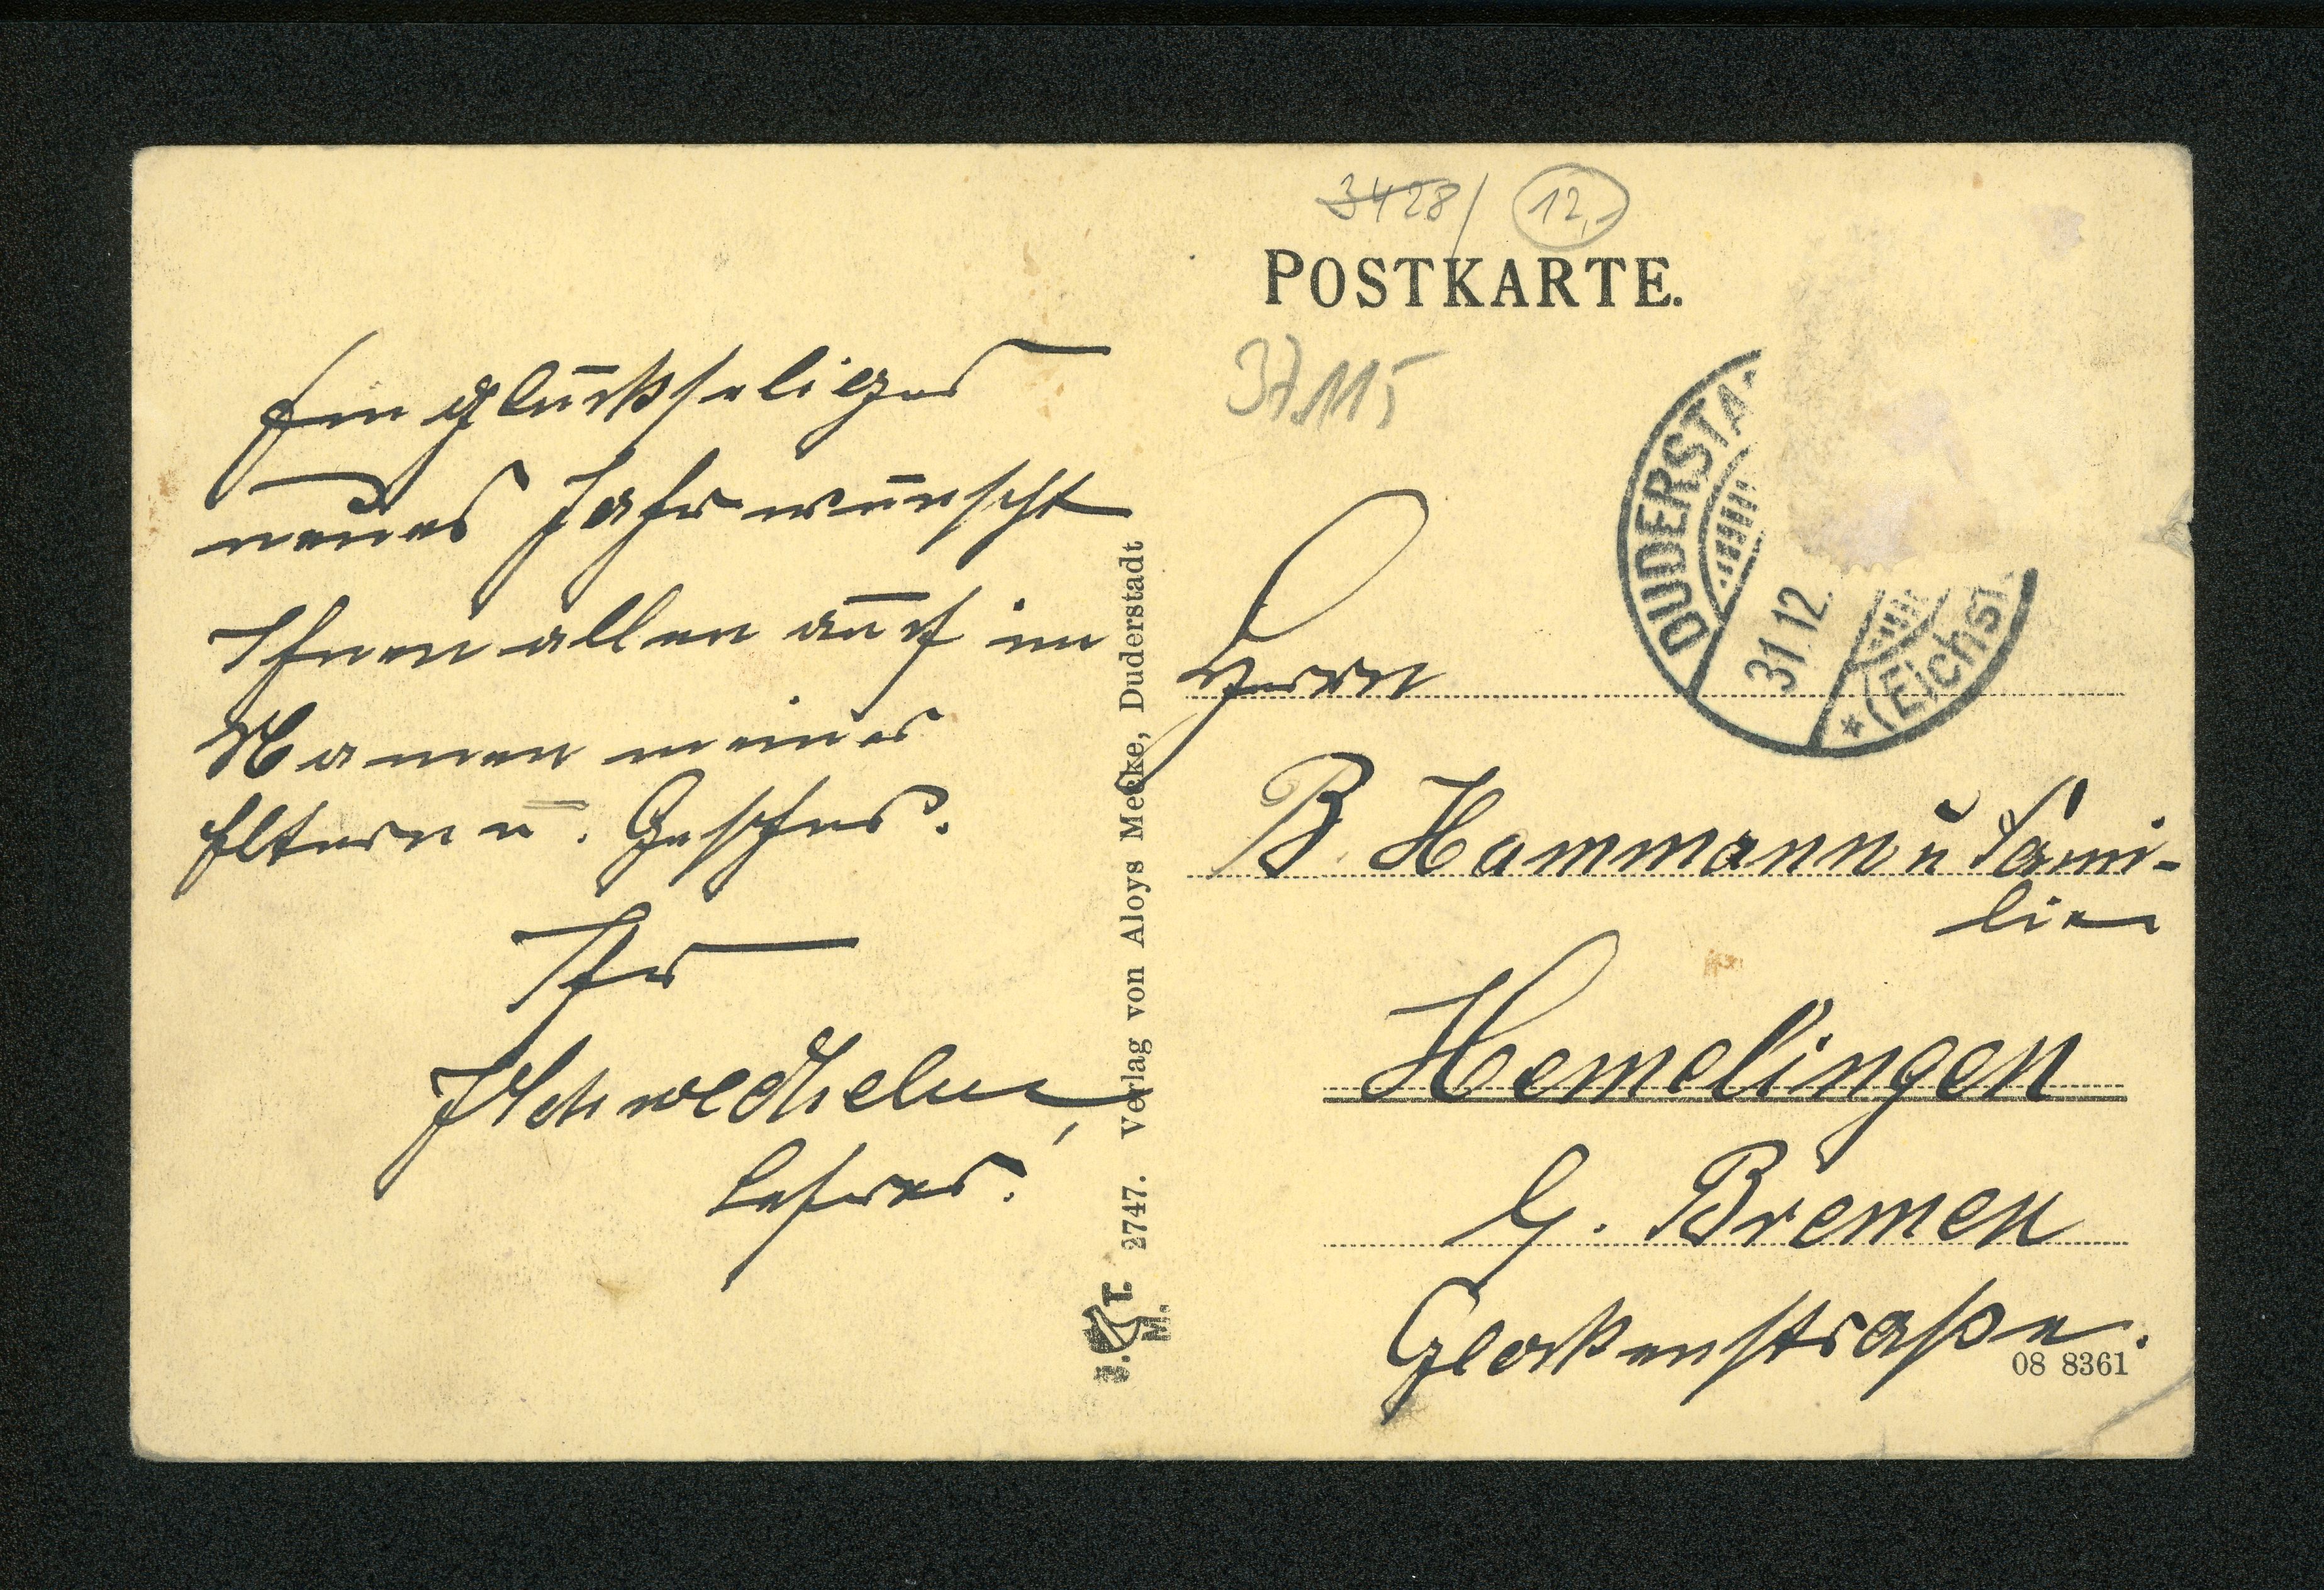 3428/ 12,-
POSTKARTE.
37115
DUDERSTA
31.12.
*(Eichsf
Ein glückseliges
neues Jahr wünscht
Ihnen allen auch im
Namen meiner
Eltern u. Geschw.
Ihr
Lehrer.
Herrn
B. Hammann u Fami-
lie
Hemelingen
b. Bremen
Glockenstraße.
08 8361
T. M. 2747. Verlag von Aloys Mecke, Duderstadt